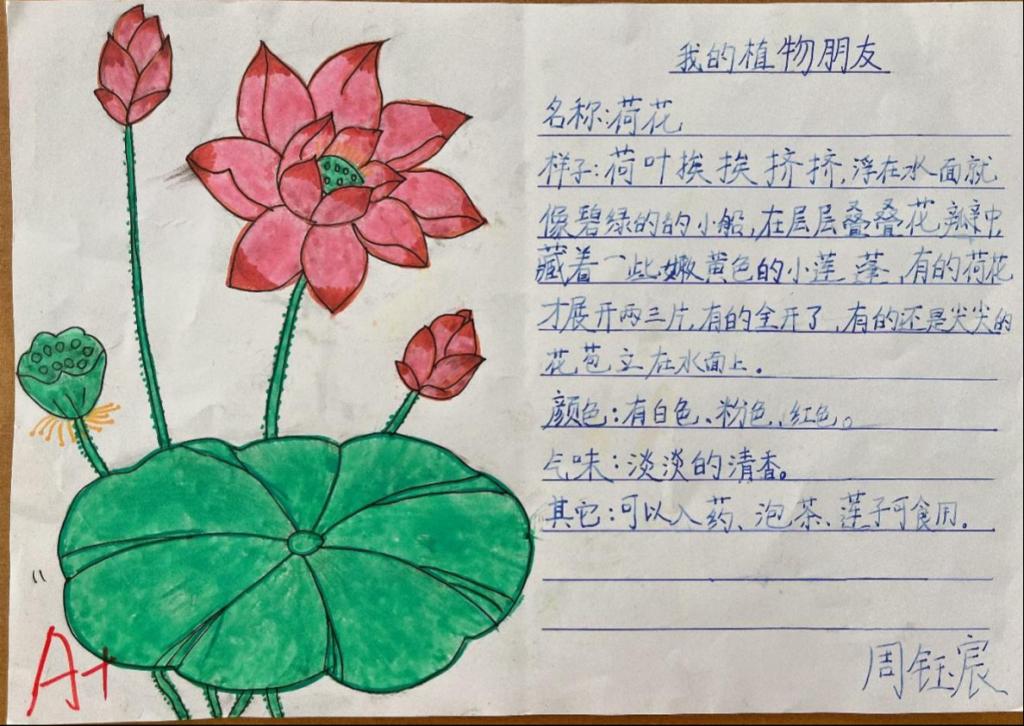 我的植物朋友
名称:荷花
样子:荷叶挨挨挤挤,浮在水面就
像碧绿的的小船,在层层叠叠花瓣中,
藏着一些嫩黄色的小莲蓬,有的荷花
才展开两三片,有的全开了,有的还是尖尖的
花苞立在水面上。
颜色:有白色、粉色、红色。
气味:淡淡的清香。
其它:可以入药、泡茶、莲子可食用.
周钰宸
A+